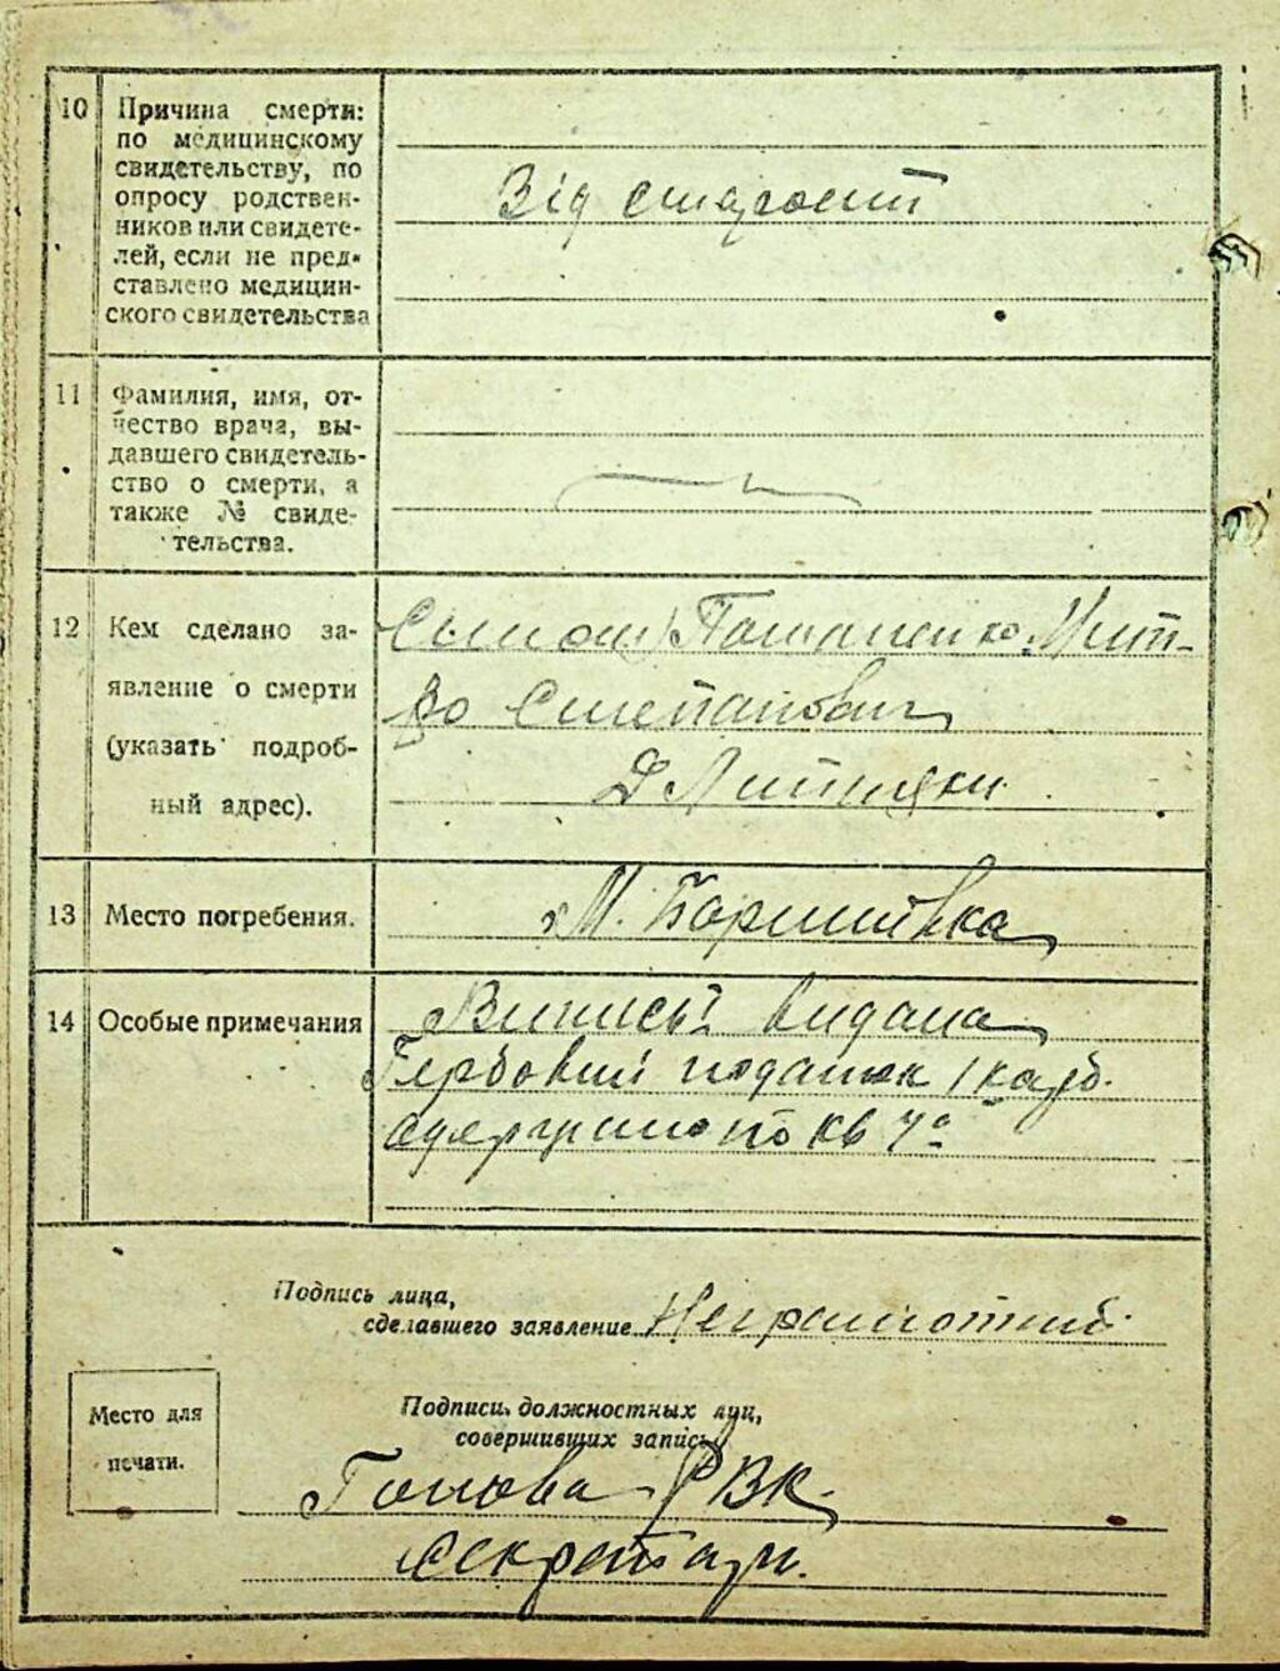 10 Причина смерти:
по медицинскому
свидетельству, по
опросу родствен-
ников или свидете-
лей, если не пред-
ставлено медицин-
ского свидетельства
Від старости
11 Фамилия, имя, от-
чество врача, вы-
давшего свидетель-
ство о смерти, а
также № свиде-
тельства.
12 Кем сделано за-
явление о смерти
(указать подроб-
ный адрес).
Сыном Мит-
ро Степанович
13 Место погребения.
М. Баришівка
14 Особые примечания
Виписъ видана
Гербовий податок 1 карб.
одержано по кв
Подпись лица,
сделавшего заявление Неграмотний
Место для
печати.
Подписи должностных лиц,
совершивших запись
Голова РВК
Секретарь